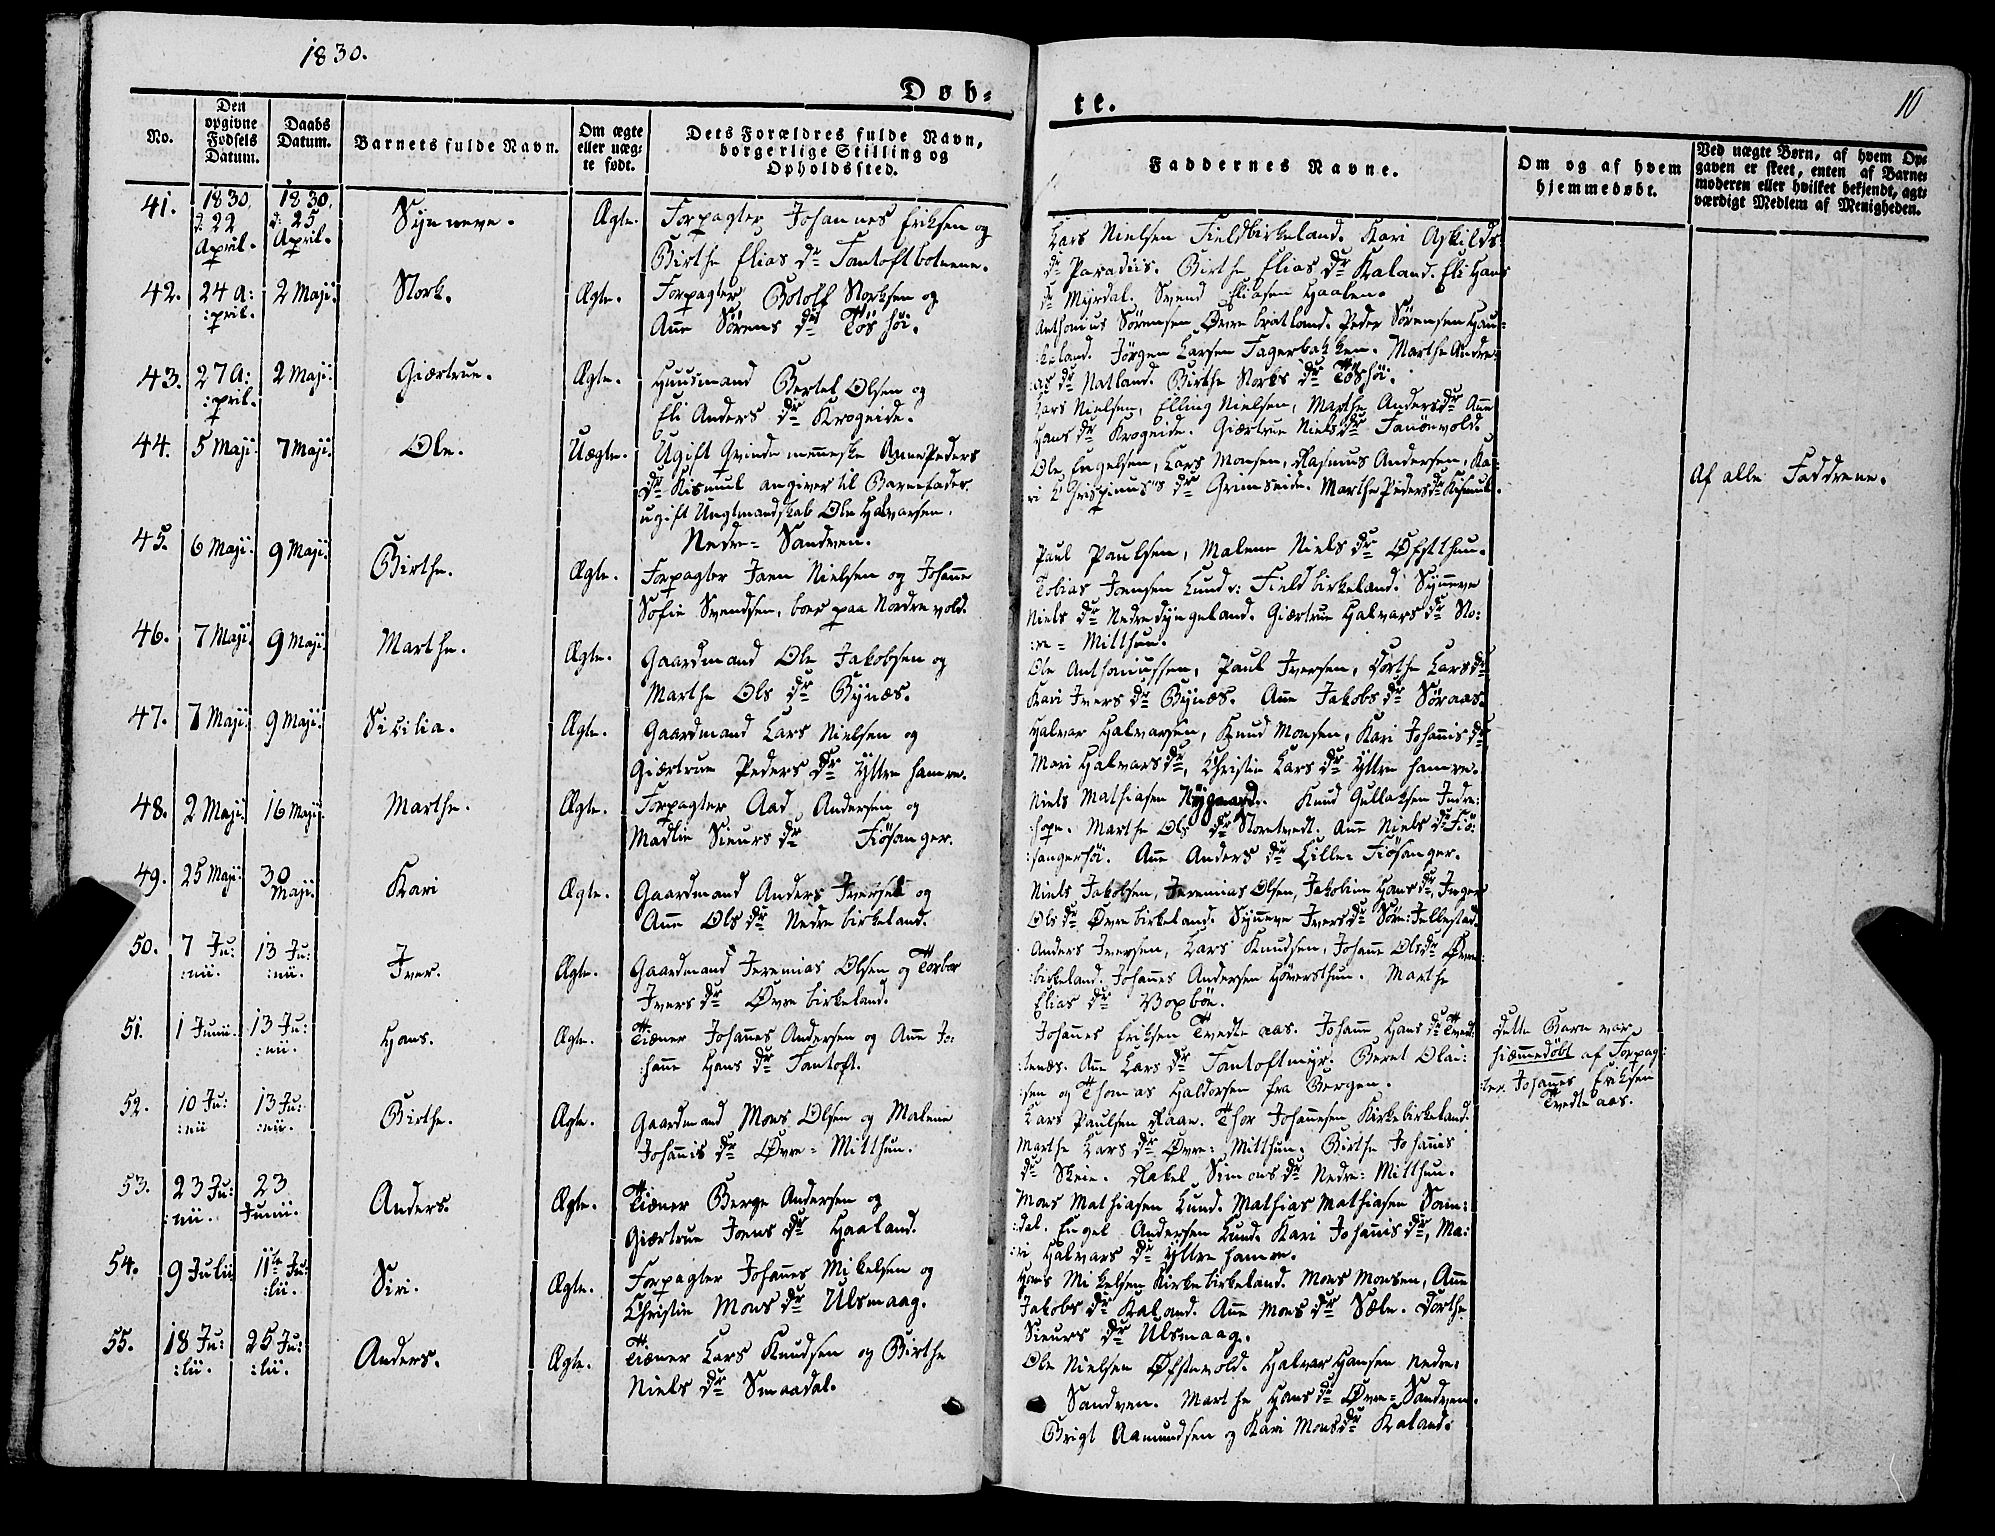 1830.
10
Døb-
te.
No.
Den opgivne Fødsels Datum.
Daabs Datum.
Barnets fulde Navn.
Om ægte eller uægte født.
Dets Forældres fulde Navn, borgerlige Stilling og Opholdssted.
Faddernes Navne.
Om og af hvem hjemmedøbt.
Ved uægte Børn, af hvem Opgaven er skeet, enten af Barnemoderen eller hvilket bekjendt, agtværdigt Medlem af Menigheden.
41.
1830, d: 22 April.
1830. d: 25 April.
Synneve.
Ægte.
Forpagter Johannes Eriksen og
Birthe Elias dr Fantoftbotnene.
Lars Nielsen Fieldbirkeland. Kari Askilds
dr Paradiis. Birthe Elias dr Kaland. Eli Hans
dr Myrdal. Svend Eliasen Haalen.
42.
24 A:
:pril.
2 Maji.
Stork.
Ægte.
Forpagter Botolf Storksen og
Anne Sørens dr Tøshøi.
Anthonius Sørensen Øvre bratland. Peder Sørensen Hau:
:keland. Jørgen Larsen Fagerbakken. Marthe Andre:
as dr Natland. Birthe Storks dr Tøshøi.
43.
27 A:
:pril.
2 Maji.
Giærtrue.
Ægte.
Huusmand Bertel Olsen og
Eli Anders dr Krogeide.
Lars Nielsen, Elling Nielsen, Marthe Anders dr Anne
Hans dr Krogeide. Giærtrue Niels dr Fanønvold.
44.
5 Maji.
7 Maji.
Ole.
Uægte.
Ugift Qvindemenneske Anne Peders
dr Kismul angiver til Barnefader
ugift Ungtmandskab Ole Halvorsen.
Nedre- Sandven.
Ole Engelsen, Lars Monsen, Rasmus Andersen, Ka:
ri Chrispinus's dr Grimseide. Marthe Peders dr Kismul.
Af alle Faddrene.
45.
6 Maji.
9 Maji.
Birthe.
Ægte.
Forpagter Joen Nielsen og Johanne
Sofie Svendsen, boer paa Nordre vold.
Paul Paulsen, Malene Niels dr Øfstthun.
Tobias Joensen Lund v: Fieldbirkeland. Synneve
Niels dr Nedredyngeland. Giærtrue Halvars dr No:
:re = Mitthun.
46.
7 Maji.
9 Maji.
Marthe.
Ægte.
Gaardmand Ole Jakobsen og
Marthe Ols dr Bynæs.
Ole Anthoniussen, Paul Iversen, Dorthe Lars dr
Kari Ivers dr Bynæs. Anne Jakobs dr Søraas.
47.
7 Maji.
9 Maji.
Sicilia.
Ægte.
Gaardmand Lars Nielsen og
Giærtrue Peders dr Yttre hamre.
Halvar Halvarsen, Knud Monsen, Kari Johannis dr
Mari Halvars dr, Christie Lars dr Yttre hamre.
48.
2 Maji.
16 Maji.
Marthe.
Ægte.
Forpagter Aad Andersen og
Madlie Sieurs dr Fiøsanger.
Niels Mathiasen Nygaard. Knud Gullaksen Indre:
:hope. Marthe Ols dr Storetvedt. Anne Niels dr Fiø:
:sangerhøi. Anne Anders dr Lille: Fiøsanger.
49.
25 Maji.
30 Maji.
Kari
Ægte.
Gaardmand Anders Iversen og
Anne Ols dr Nedre birkeland.
Niels Jakobsen, Jeremias Olsen, Jakobine Hans dr, Inger
Ols dr Øvre birkeland. Synneve Ivers dr Søre: Fellestad.
50.
7 Ju:
:nii.
13 Ju:
:nii.
Iver.
Ægte.
Gaardmand Jeremias Olsen og Torbor
Ivers dr Øvre birkeland.
Anders Iversen, Lars Knudsen, Johanne Ols dr Øvre:
:birkeland. Johannes Andersen Høversthun. Marthe
Elias dr Boxbøe.
51.
1 Junii.
13 Ju:
:nii.
Hans.
Ægte.
Tiæner Johannes Andersen og Anne Jo:
:hanne Hans dr Fantoft.
Johannes Eriksen Tvedteaas. Johanne Hans dr Tved:
:tenæs. Anne Lars dr Fantoftmyr. Beret Olai:
:sen og Thomas Haldorsen fra Bergen.
dette Barn var
hiemmedøbt af Forpag:
:ter Johannes Eriksen
Tvedteaas.
52.
10 Ju:
:nii
13 Ju:
:nii.
Birthe.
Ægte.
Gaardmand Mons Olsen og Malene
Johannis dr Øvre- Mitthun.
Lars Paulsen Raae. Thor Johannesen Kirkebirkeland.
Marthe Lars dr Øvre: Mitthun. Birthe Johannis
dr Skeie. Rakel Simons dr Nedre: Mitthun.
53.
23 Ju:
:nii.
23
Junii.
Anders.
Ægte.
Tiæner Berge Andersen og
Giærtrue Joens dr Haaland.
Mons Mathiasen Lund. Mathias Mathiasen Søm:
:dal. Engel Andersen Lund. Kari Johannis dr, Ma:
:ri Halvars dr Yttre hamre.
54.
9 Julii
11te Ju:
:lii.
Siri.
Ægte.
Forpagter Johannes Mikelsen og
Christie Mons dr Ulsmaag.
Hans Mikelsen Kirkebirkeland. Mons Monsen, Anne
Jakobs dr Kaland. Anne Mons dr Sæle. Dorthe
Sieurs dr Ulsmaag.
55.
18 Ju:
:lii.
25 Ju:
:lii.
Anders.
Ægte.
Tiæner Lars Knudsen og Birthe
Niels dr Smaadal.
Ole Nielsen Øfstevold. Halvar Hansen Nedre:
Sandven. Marthe Hans dr Øvre- Sandven.
Brigt Aamundsen og Kari Mons dr Kaland.